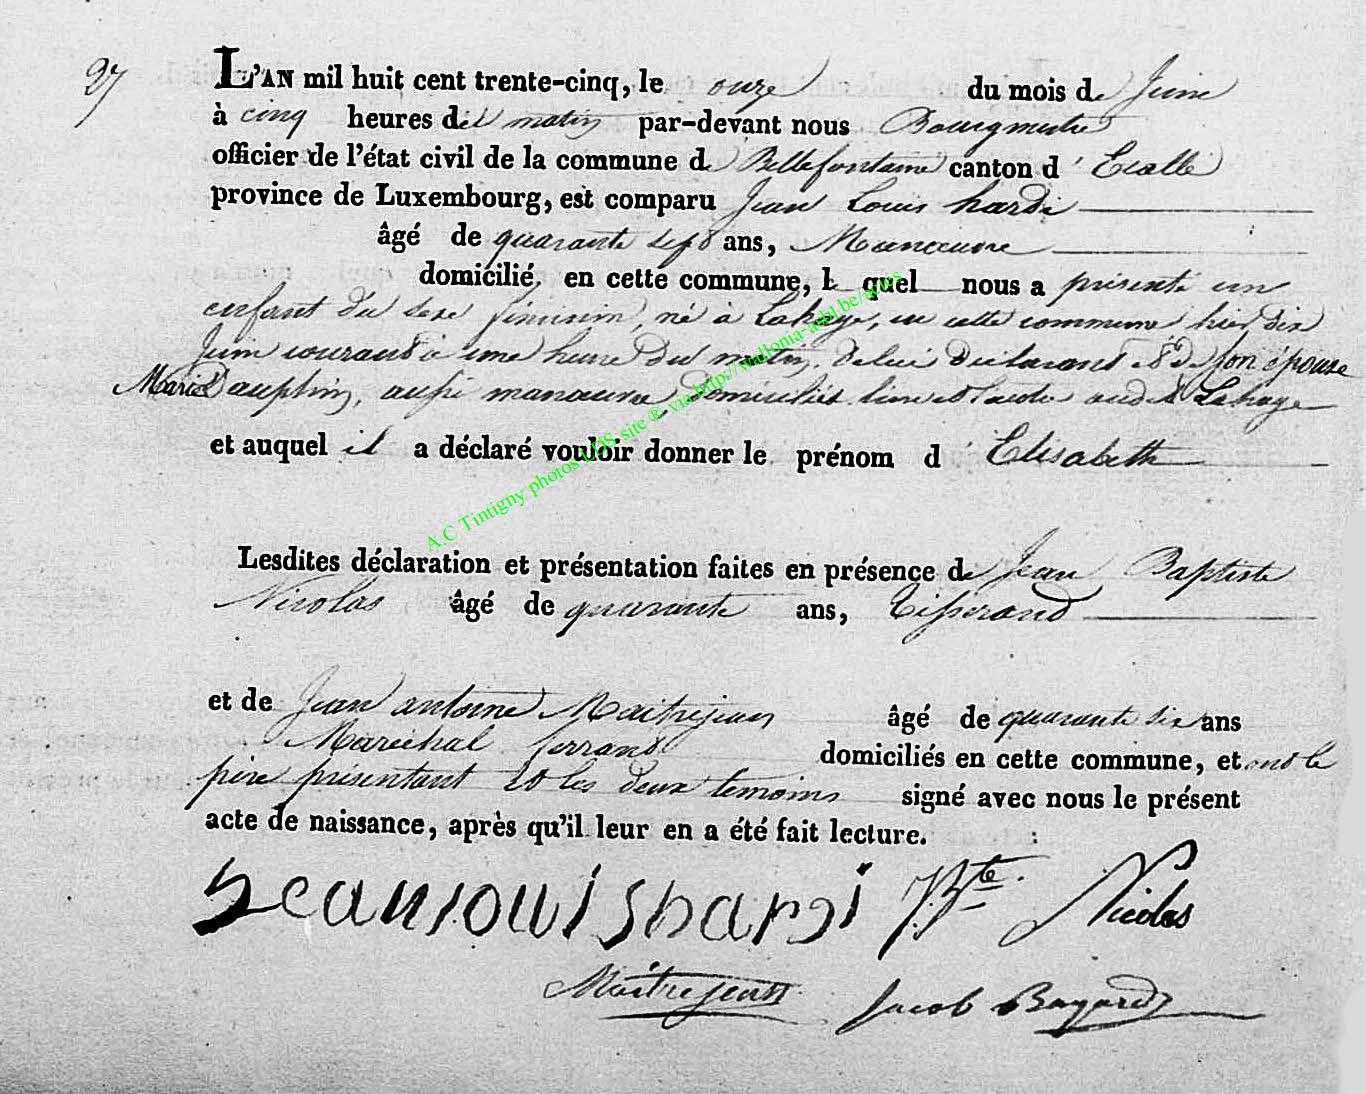 27
L'AN mil huit cent trente-cinq, le onze du mois de Juin
à cinq heures du matin par-devant nous Bourgmestre
officier de l'état civil de la commune de Bellefontaine canton d' Etalle
province de Luxembourg, est comparu Jean Louis hardi
âgé de quarante sept ans, Manœuvre
domicilié en cette commune, lequel nous a présenté un
enfant du sexe féminin, né à Lahage, en cette commune hier dix
Juin courant à une heure du matin, de lui déclarant et de son épouse
Marie Dauphin, aussi manœuvre, domiciliés l'un et l'autre audit Lahage
et auquel il a déclaré vouloir donner le prénom d' Elisabeth
Lesdites déclaration et présentation faites en présence de Jean Baptiste
Nicolas âgé de quarante ans, Tisserand
et de Jean antoine Maitrejean âgé de quarante six ans
Maréchal ferrant domiciliés en cette commune, et ont le
père présentant et les deux temoins signé avec nous le présent
acte de naissance, après qu'il leur en a été fait lecture.
Jean louis hardi J. Bte. Nicolas
Maitrejean Jacob Bayard
A.C Tintigny photos LDS site ® via http://wallonia-asbl.be/actes